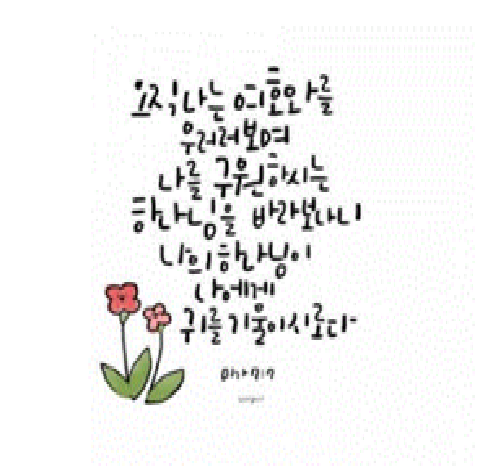 오직 나는 여호와를
우러러보며
나를 구원하시는
하나님을 바라보나니
나의 하나님이
나에게
귀를 기울이시로다
미가 7:7